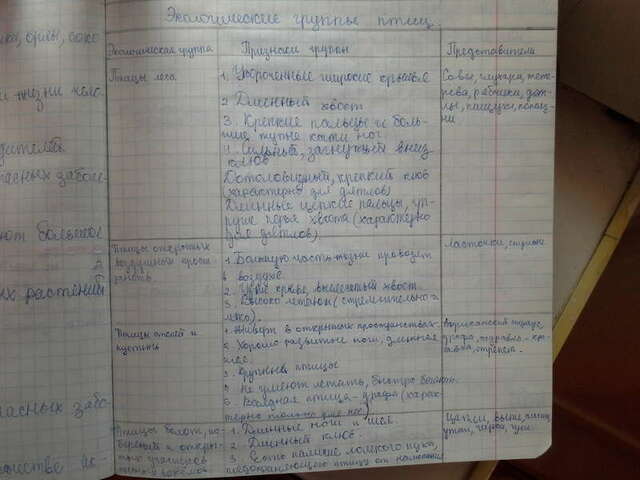 Экологические группы птиц.
Экологическая группа
Признаки группы
Представители
Птицы леса
1. Укороченные широкие крылья
2 Длинный хвост
3. Крепкие пальцы и боль-
шие тупые когти ног
4. Сильный, загнутый вниз
клюв
Долотовидный, крепкий клюв
(характерно для дятлов)
Длинные цепкие пальцы, уп-
ругие перья хвоста (характерно
для дятлов)
Совы, глухари, тете-
рева, рябчики, дят-
лы, пищухи, поползни
Птицы открытых
воздушных прост-
ранств.
1. Большую часть жизни проводят
в воздухе.
2. Узкие крылья, вильчатый хвост.
3. Высоко летают (стремительно и
легко).
Ласточки, стрижи
Птицы степей и
пустынь
1. Живут в открытых пространствах.
2. Хорошо развитые ноги, длинная
шея.
3. Крупные птицы
Не умеют летать, быстро бегают.
Всеядная птица - дрофа (харак-
терно только для нее)
Африканский страус,
дрофа, журавль - кра-
савка, стрепет.
Птицы болот, по-
бережий и откры-
тых
1. Длинные ноги и шея.
2. Длинный клюв.
3. Есть наличие мощного пуха,
предохраняющего птицу от намокания
Цапли, выпи, аисты,
утки, чайки, гуси
орлы, соко
жизни чело
пасных забол
ют большое
ых растений
пасных забо-